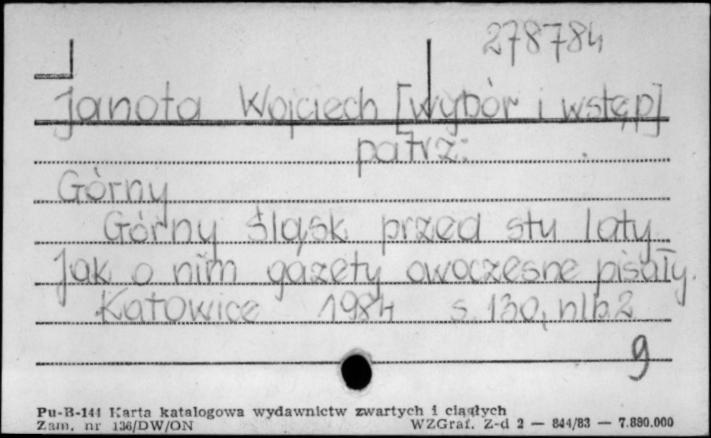 278784
Janota Wojciech [wybór i wstęp]
patrz:
Górny
Górny Śląsk przed stu laty.
Jak o nim gazety owoczesne pisały.
Katowice 1984 s. 130, nlb. 2
9
Pu-B-144 Karta katalogowa wydawnictw zwartych i ciągłych
Zam. nr 136/DW/ON WZGraf. Z-d 2 — 844/83 — 7.880.000